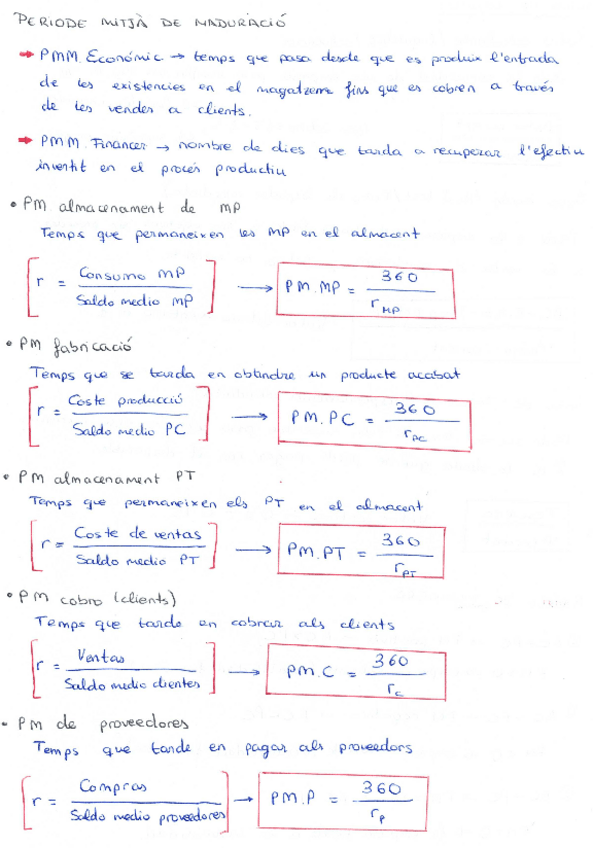 PERIODE MITJÀ DE MADURACIÓ
→ PMM. Econòmic → temps que pasa desde que es produix l'entrada
de les existencies en el magatzem fins que es cobren a través
de les vendes a clients.
→ PMM. Financer → nombre de dies que tarda a recuperar l'efectiu
invertit en el procés productiu
• PM. almacenament de MP
Temps que permaneixen les MP en el almacent
[r = Consumo MP / Saldo medio MP] → PM.MP = 360 / r MP
• PM fabricació
Temps que se tarda en obtindre un producte acabat
[r = Coste producció / Saldo medio PC] → PM.PC = 360 / r PC
• PM almacenament PT
Temps que permaneixen els PT en el almacent
[r = Coste de ventas / Saldo medio PT] → PM.PT = 360 / r PT
• PM cobro (clients)
Temps que tarde en cobrar als clients
[r = Ventas / Saldo medio clientes] → PM.C = 360 / r c
• PM de proveedores
Temps que tarde en pagar als proveedors
[r = Compras / Saldo medio proveedores] → PM.P = 360 / r p